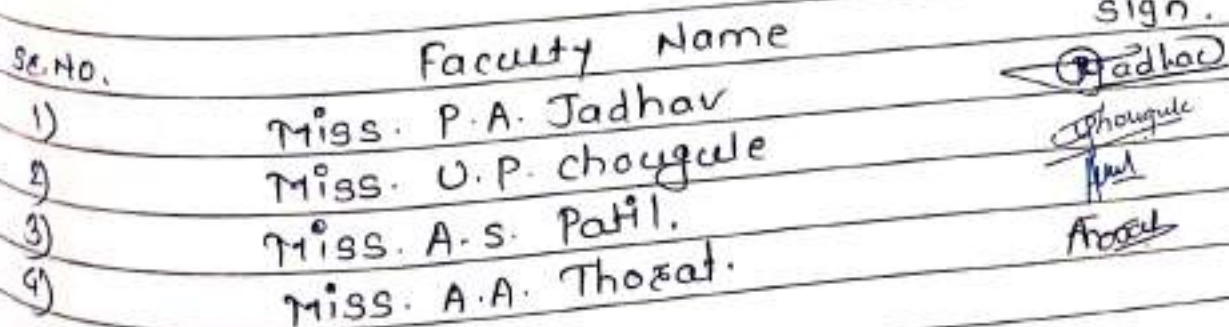 Sr.No. Faculty Name Sign.
1) Miss. P.A. Jadhav Jadhav
2) Miss. U.P. Chougule Chougule
3) Miss. A.S. Patil.
4) Miss. A.A. Thorat.